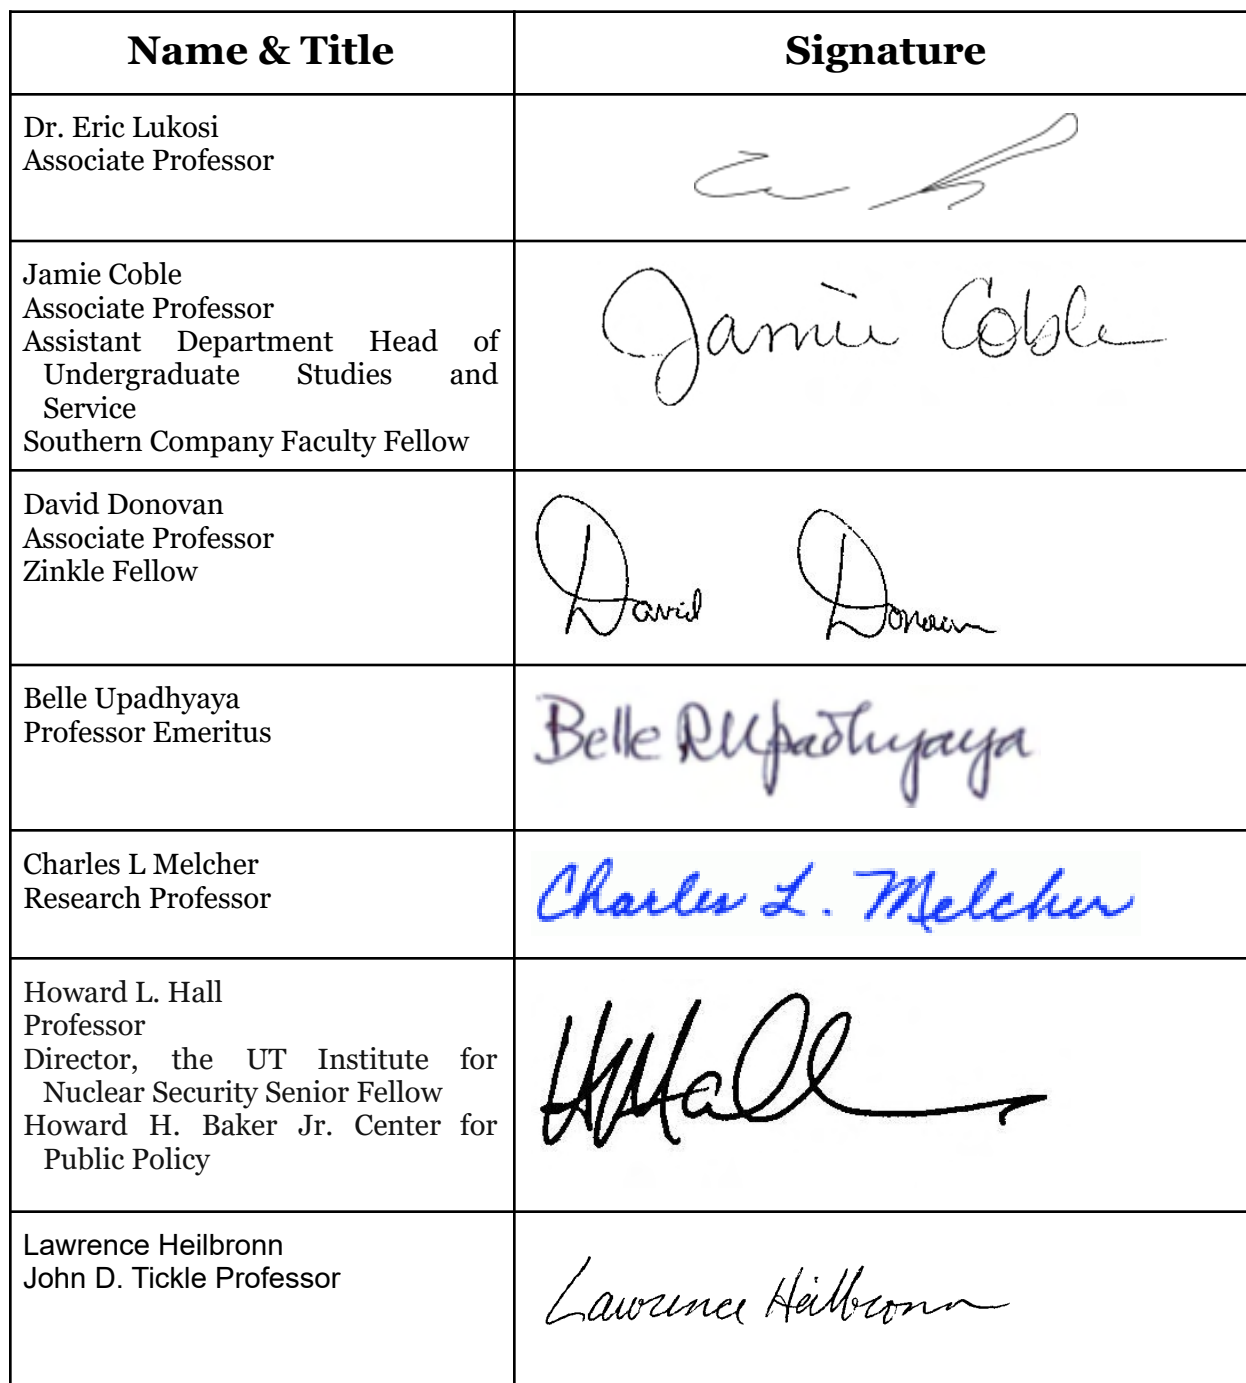 Name & Title Signature
Dr. Eric Lukosi
Associate Professor
Jamie Coble
Associate Professor
Assistant Department Head of
Undergraduate Studies and
Service
Southern Company Faculty Fellow
Jamie Coble
David Donovan
Associate Professor
Zinkle Fellow
David Donovan
Belle Upadhyaya
Professor Emeritus
Belle R Upadhyaya
Charles L Melcher
Research Professor
Charles L. Melcher
Howard L. Hall
Professor
Director, the UT Institute for
Nuclear Security Senior Fellow
Howard H. Baker Jr. Center for
Public Policy
HLHall
Lawrence Heilbronn
John D. Tickle Professor
Lawrence Heilbronn